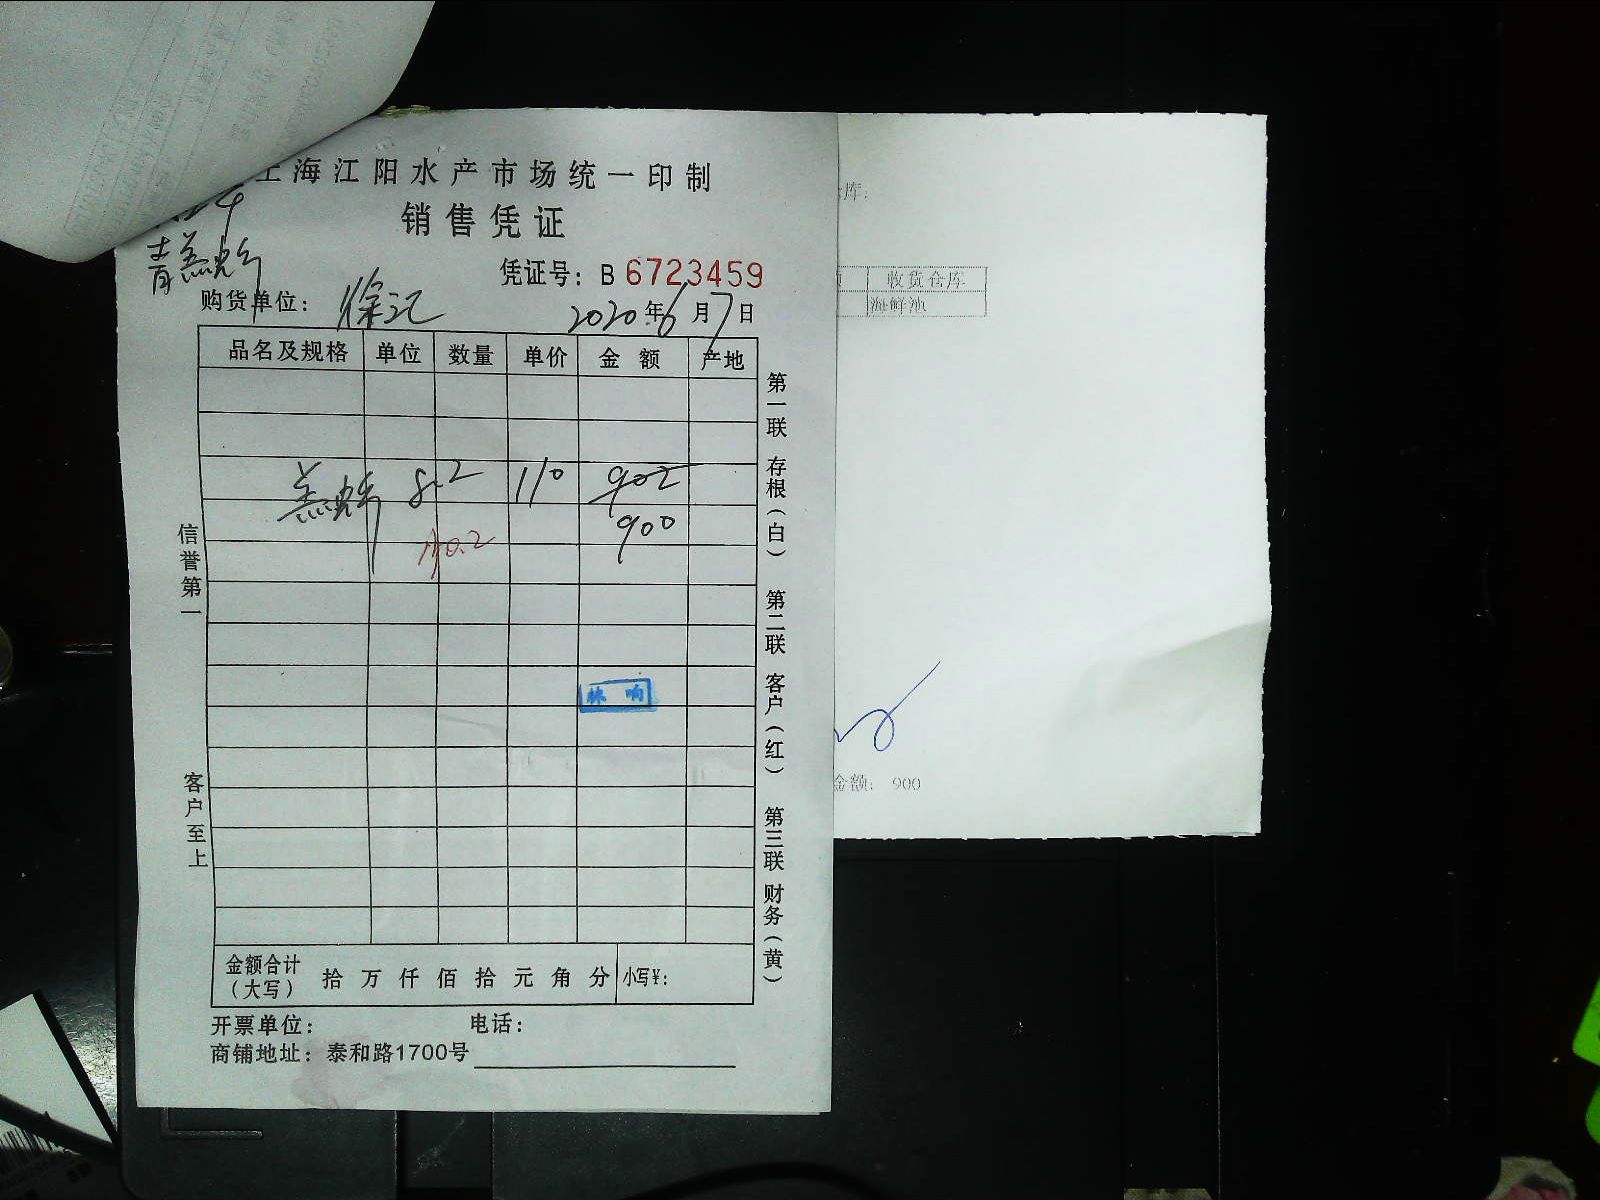 上海江阳水产市场统一印制
销售凭证
凭证号: B 6723459
购货单位: 徐汇
2020年6月7日
品名及规格 单位 数量 单价 金额 产地
8.2 110 902
900
信誉第一
客户至上
第一联 存根(白) 第二联 客户(红) 第三联 财务(黄)
金额合计(大写) 拾 万 仟 佰 拾 元 角 分 小写¥:
开票单位: 电话:
商铺地址: 泰和路1700号
库:
收货仓库
海鲜池
金额: 900